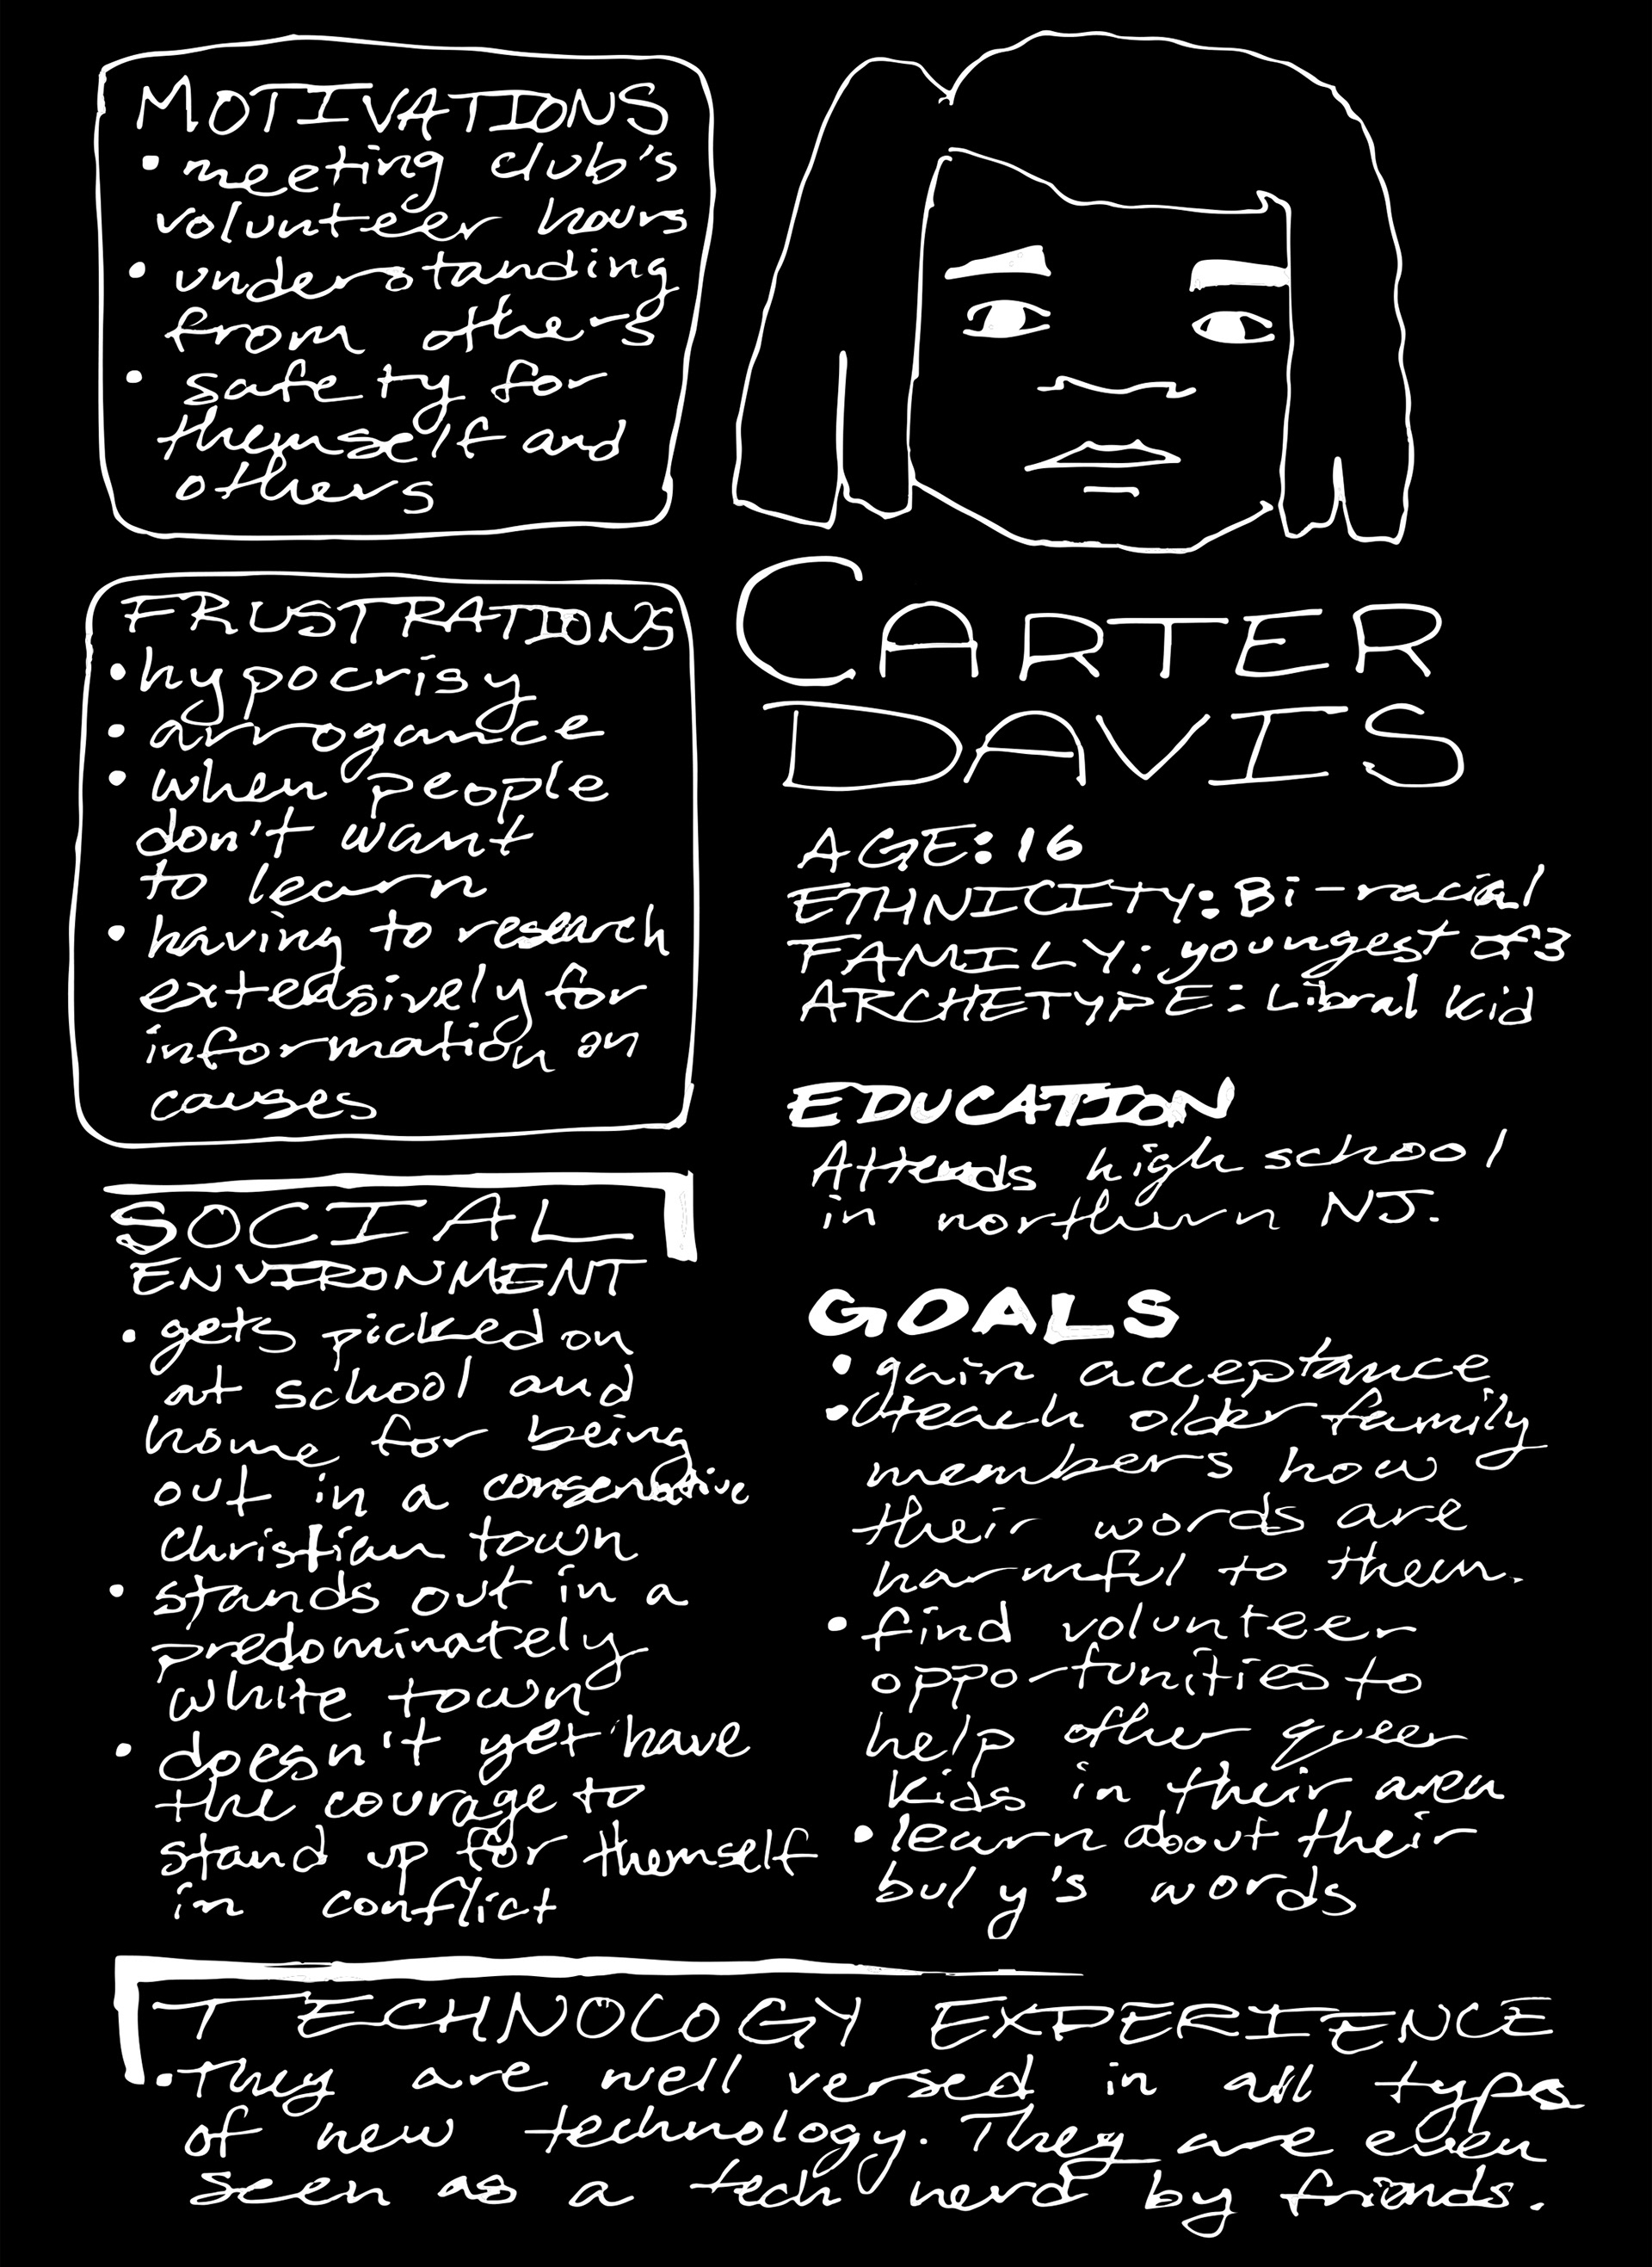 MOTIVATIONS
• meeting club's
volunteer hours
• understanding
from others
• safety for
themself and
others
FRUSTRATIONS
• hypocrisy
• arrogance
• when people
don't want
to learn
• having to research
extensively for
information on
causes
SOCIAL
ENVIRONMENT
• gets picked on
at school and
home for being
out in a conservative
Christian town
• stands out in a
predominately
white town
• doesn't yet have
the courage to
stand up for themself
in conflict
CARTER
DAVIS
AGE: 16
ETHNICITY: Bi-racial
FAMILY: youngest of 3
ARCHETYPE: Libral kid
EDUCATION
Attends high school
in northern NJ.
GOALS
• gain acceptance
• teach older family
members how
their words are
harmful to them.
• find volunteer
opportunities to
help other queer
kids in their area
• learn about their
bully's words
TECHNOLOGY EXPERIENCE
• They are well versed in all types
of new technology. They are even
seen as a tech nerd by friends.